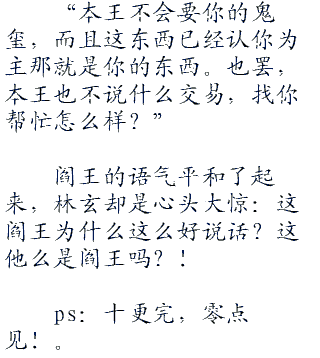 “本王不会要你的鬼
玺，而且这东西已经认你为
主那就是你的东西。也罢，
本王也不说什么交易，找你
帮忙怎么样？”
阎王的语气平和了起
来，林玄却是心头大惊：这
阎王为什么这么好说话？这
他么是阎王吗？！
ps：十更完，零点
见！。